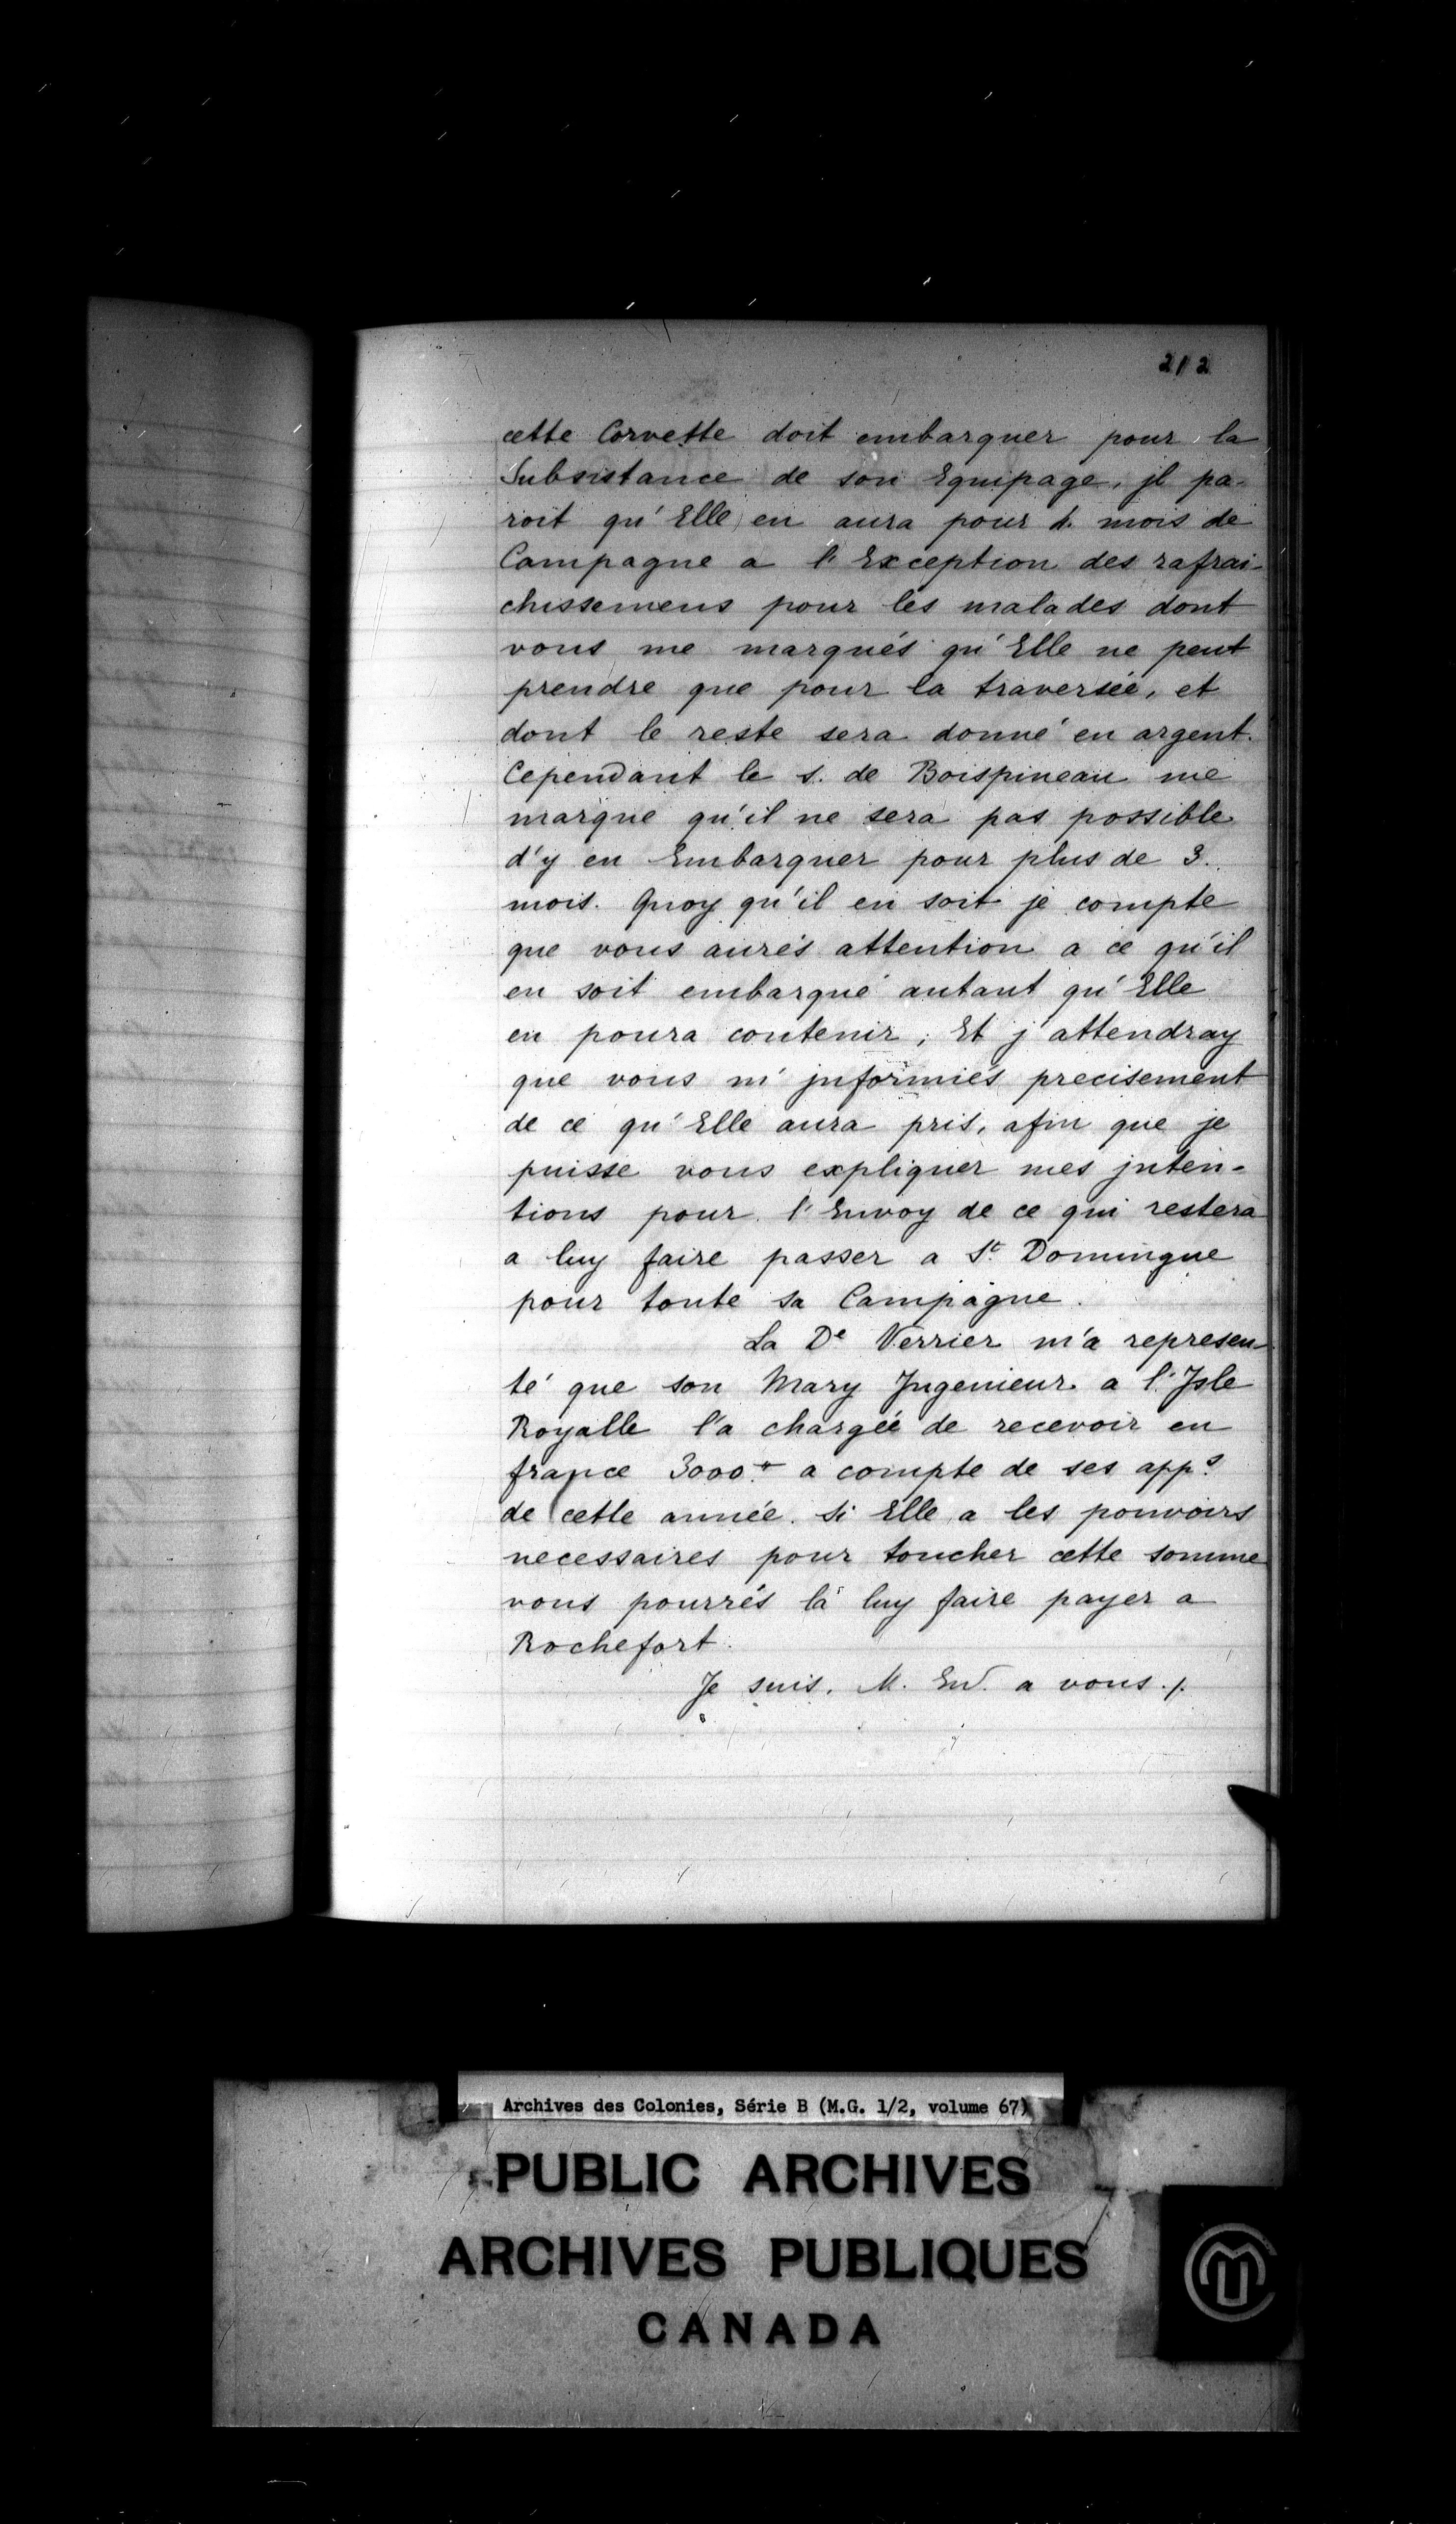 212
cette Corvette doit embarquer pour la
Subsistance de son Equipage, jl pa-
roit qu'Elle en aura pour 4. mois de
Campagne a l'Exception des rafrai-
chissemens pour les malades dont
vous me marqués qu'Elle ne peut
prendre que pour la traversée, et
dont le reste sera donné en argent.
Cependant le s. de Boispineau me
marque qu'il ne sera pas possible
d'y en Embarquer pour plus de 3.
mois. Quoy qu'il en soit je compte
que vous aurés attention a ce qu'il
en soit embarqué autant qu'Elle
en poura contenir; Et j'attendray
que vous m'jnformiés precisement
de ce qu'Elle aura pris, afin que je
puisse vous expliquer mes jnten-
tions pour l'Envoy de ce qui restera
a luy faire passer a St. Domingue
pour toute sa Campagne.
La De Verrier m'a represen-
té que son Mary Jngenieur a l'Jsle
Royalle l'a chargée de recevoir en
france 3000# a compte de ses apps.
de cette année. Si Elle a les pouvoirs
necessaires pour toucher cette somme
vous pourrés la luy faire payer a
Rochefort.
Je suis, M. En. a vous ./.
Archives des Colonies, Série B (M.G. 1/2, volume 67)
PUBLIC ARCHIVES
ARCHIVES PUBLIQUES
CANADA